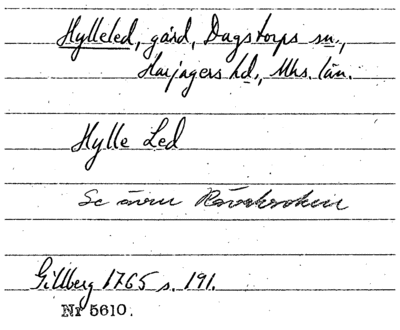 Hylleled, gård, Dagstorps sn.,
Harjagers hd., Mhs. län.
Hylle Led
Se även
Gillberg 1765 s. 191.
Nr 5610.